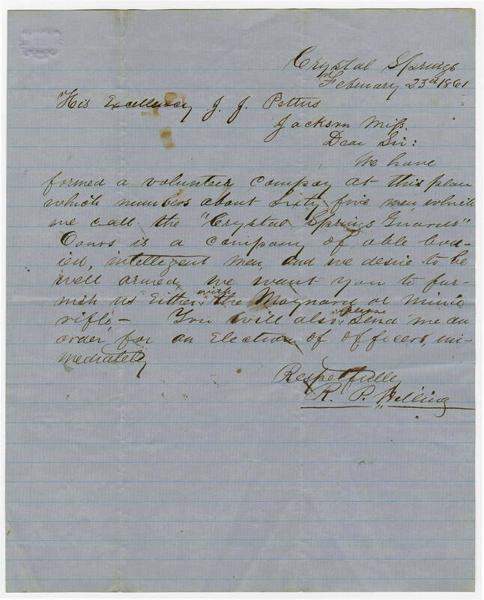 Crystal Springs
February 23rd 1861
His Excellency J. J. Pettus
Jackson Miss.
Dear Sir:
We have
formed a volunteer company at this place
which numbers about Sixty five men, which
we call the "Crystal Springs Guards"
Ours is a company of able bod-
ied, intelligent men, and we desire to be
well armed, we want you to fur-
nish us Either with the Maynard or minie
rifle,- You will also please send me an
order for an Election of officers im-
mediately
Respectfully
R. P. Willing